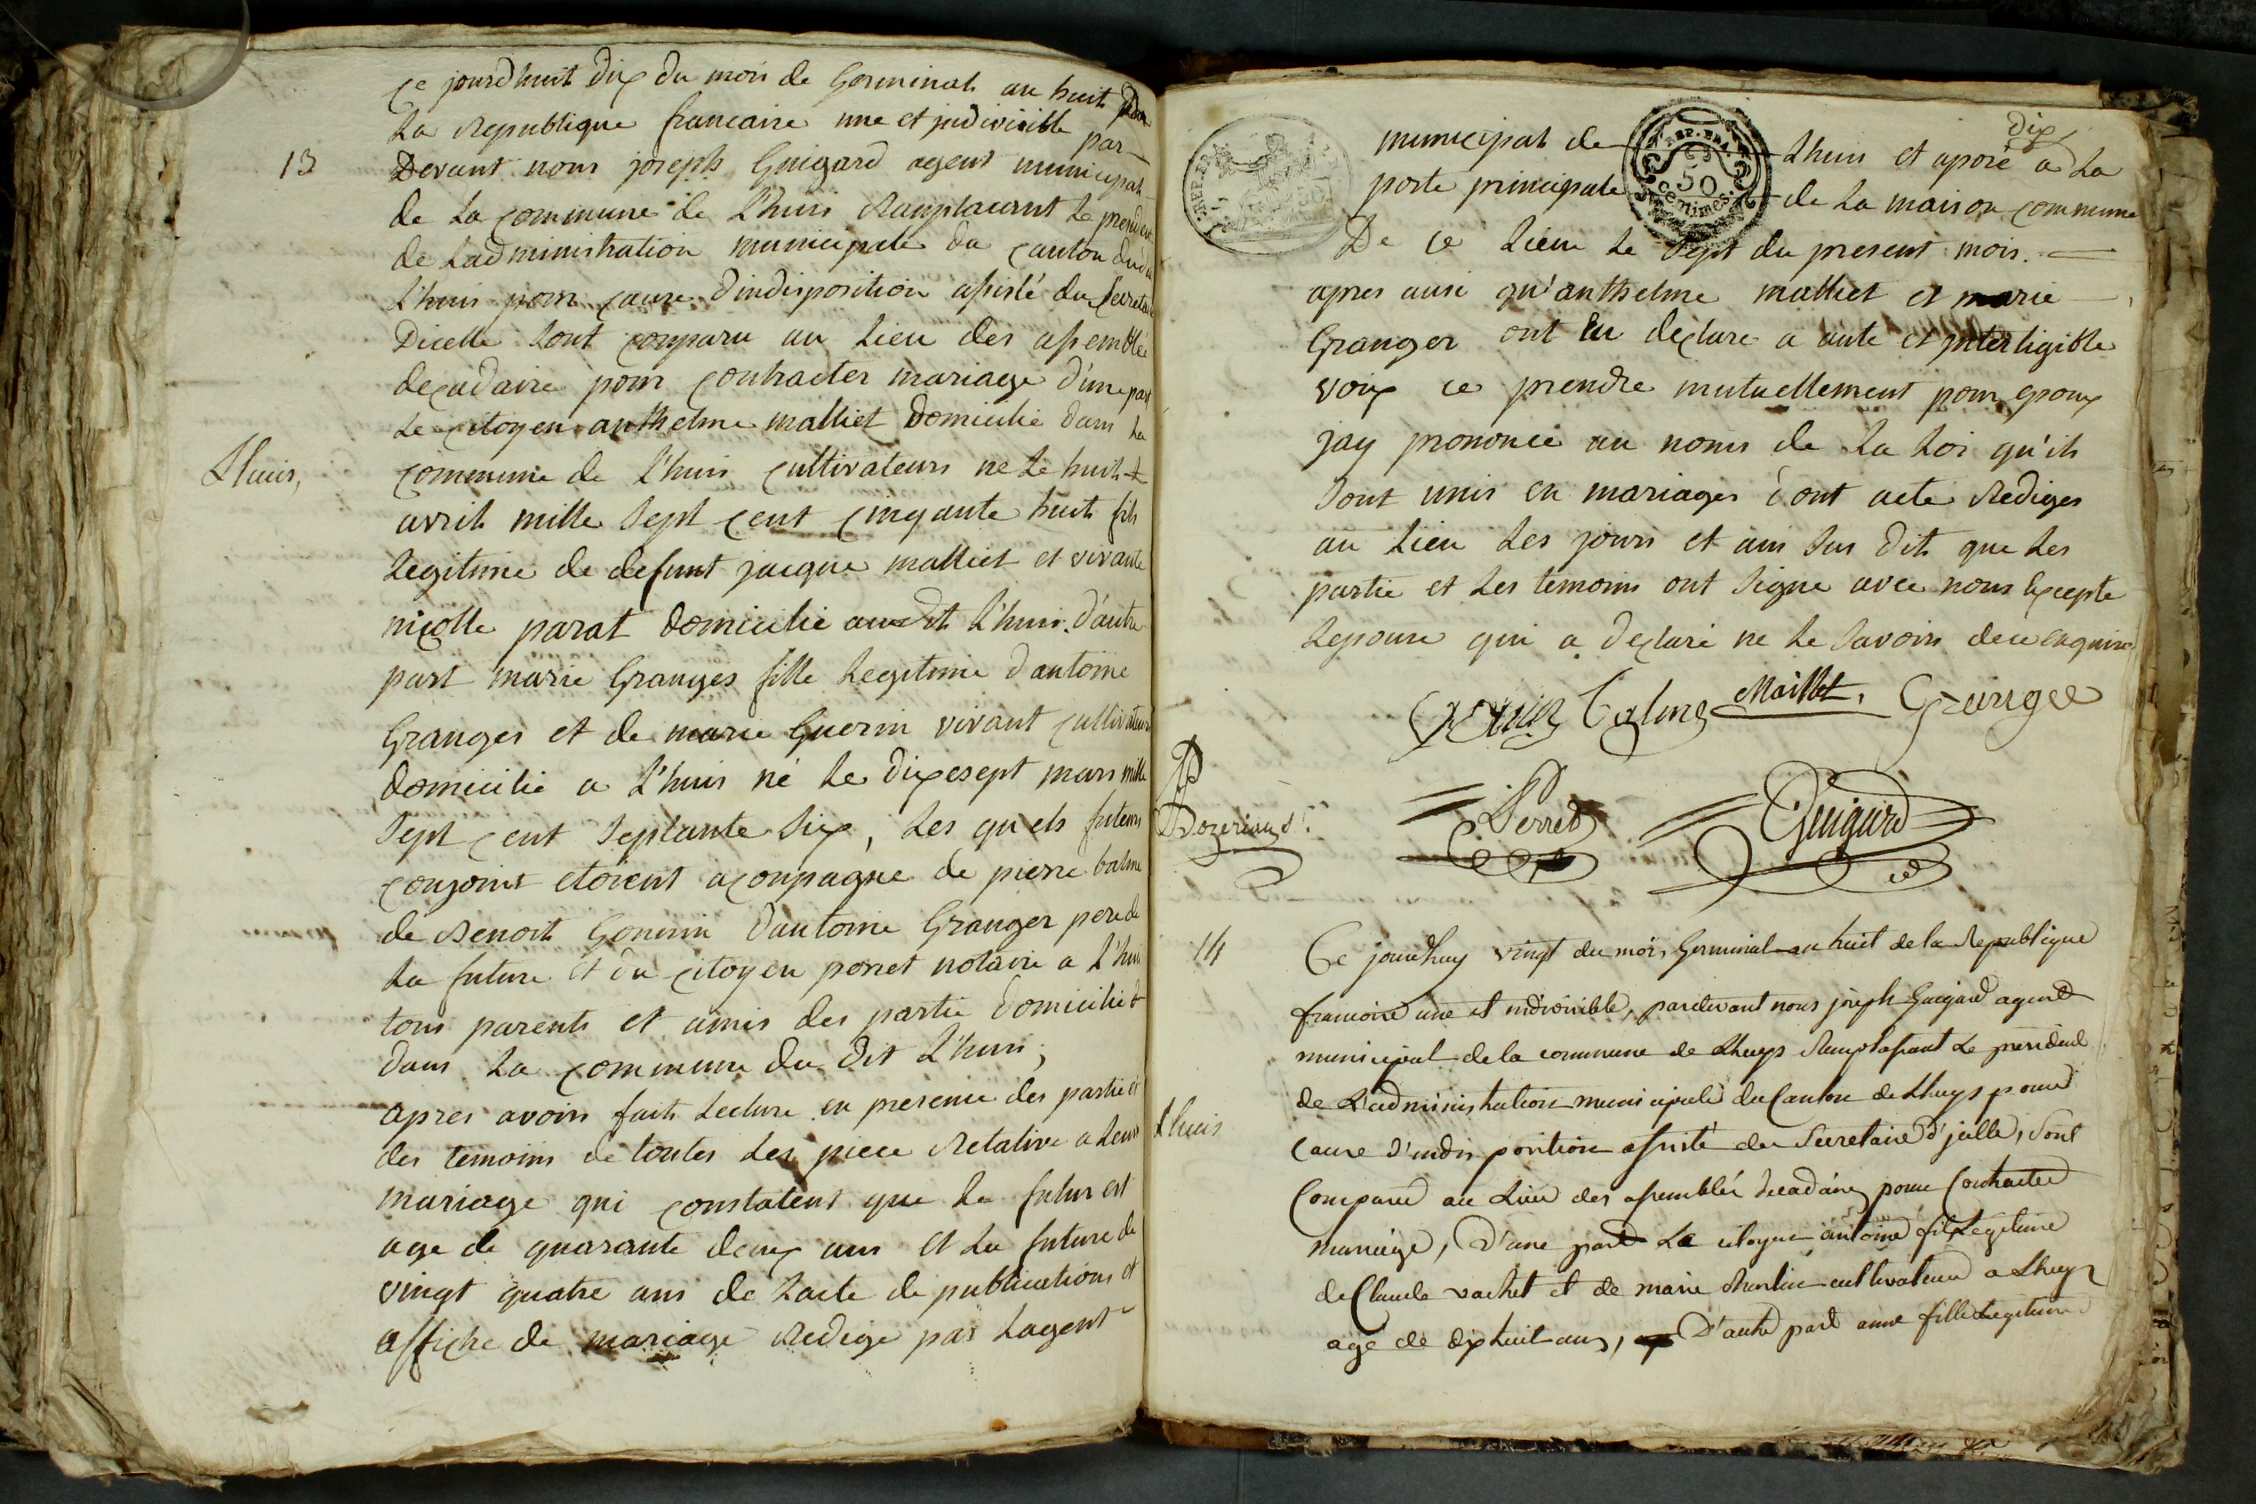 Ce jourdhuit dix du mois de Germinal an huit de
La Republique francaire une et judivisible par
13
Devant nous joseph Guigard agent municipal
de La commune de L'huis Ramplacent Le president
de Ladministration municipale du canton dudit
L'huis pour cause d'indisposition assisté du Secretair
Dicelle Sont comparu au Lieu des assemblée
decadaire pour contracter mariage d'une part
Le citoyen anthelme malliet Domicilie dans La
Lhuis,
commune de L'huis cultivateurs ne Le huit
avril mille Sept cent cinqante huit fils
Legitime de defunt jacque malliet et vivante
nicolle parat domicilie audit L'huis d'autre
part marie Granges fille Legitime d'antoine
Granges et de marie Guerin vivant cultivateur
domicilie a L'huis né Le dixesept mars mille
Sept cent Septante Six, Les quels futurs
conjoint etoient acompagne de pierre balme
de Benoit Gonnin d'antoine Granger pere de
La future et du citoyen perret notaire a L'huis
tous parents et amis des partie domicilié
dans La commune du dit L'huis,
apres avoirs faits Lecture en presence des partie et
des temoins de toutes Les piece Relative a Leurs
mariage qui constatent que Le futur est
age de quarante deux ans et La future de
vingt quatre ans de Lacte de publications et
affiche de mariage Redige par Lagent
dix
municipal de Lhuis et aposé a La
porte principale de La maison commune
De ce Lieu Le Sept du present mois.
REP. FRA.
50
centimes
apres ausi qu'anthelme malliet et marie
Granger ont eu declare a aute et jnterligible
voix ce prendre mutuellement pour epoux
jay prononce au noms de La Loi qu'ils
Sont unis en mariages dont acte Rediges
au Lieu Les jours et ans Sus dit que Les
partie et Les temoins ont Signe avec nous Excepte
Lepouse qui a declaré ne Le Savoirs dece enquire
Balme Maillet. Grange
Bozerian Sr.
Perret Guigard
14
Ce jourdhuy vingt du mois Germinal an huit de la Republique
francoise une et indivisible, pardevant nous joseph Guigard agent
municipal de la commune de Lhuys Ramplasant Le president
de L'administration municipale du Canton de Lhuys pour
Lhuis
Cause d'indisposition assisté du Secretaire d'jcelle, Sont
Comparu au Lieu des assemblée decadaire pour Contracter
mariage, D'une part Le citoyen antoine fils Legitime
de Claude vachet et de marie cultivateur a Lhuys
age de dix huit ans, D'autre part anne fille Legitime